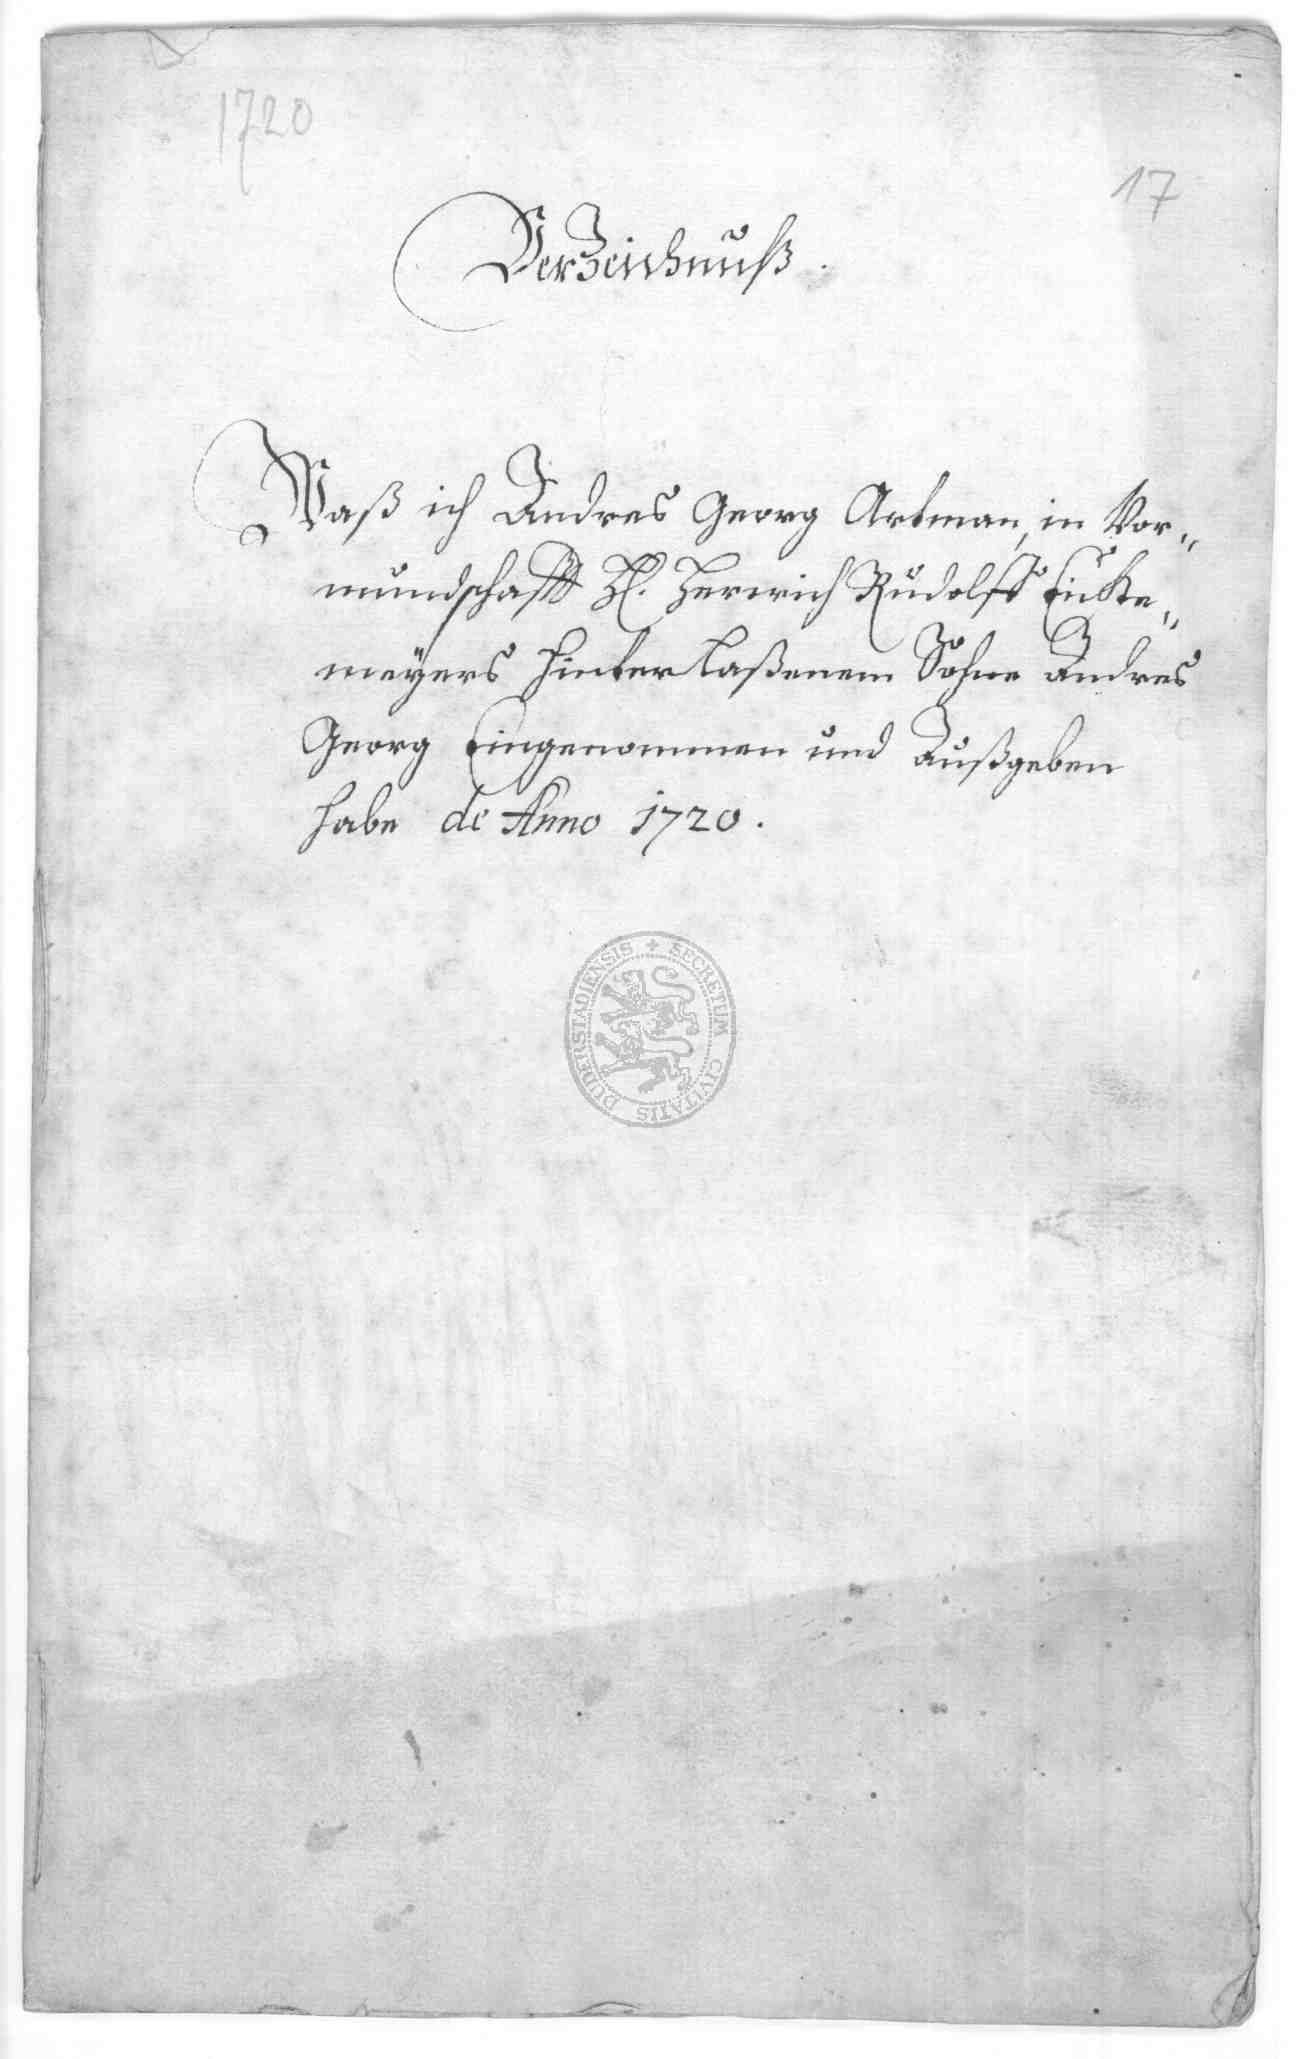 1720
17
Verzeichnuß.
Waß ich Andres Georg Artman, in Vor„
mundschafft Hl. Henrich Rudolff Eicke„
meÿers hinterlaßenem Sohne Andres
Georg Eingenommen und Außgeben
habe de Anno 1720.
SECRETUM CIVITATIS DUDERSTADIENSIS